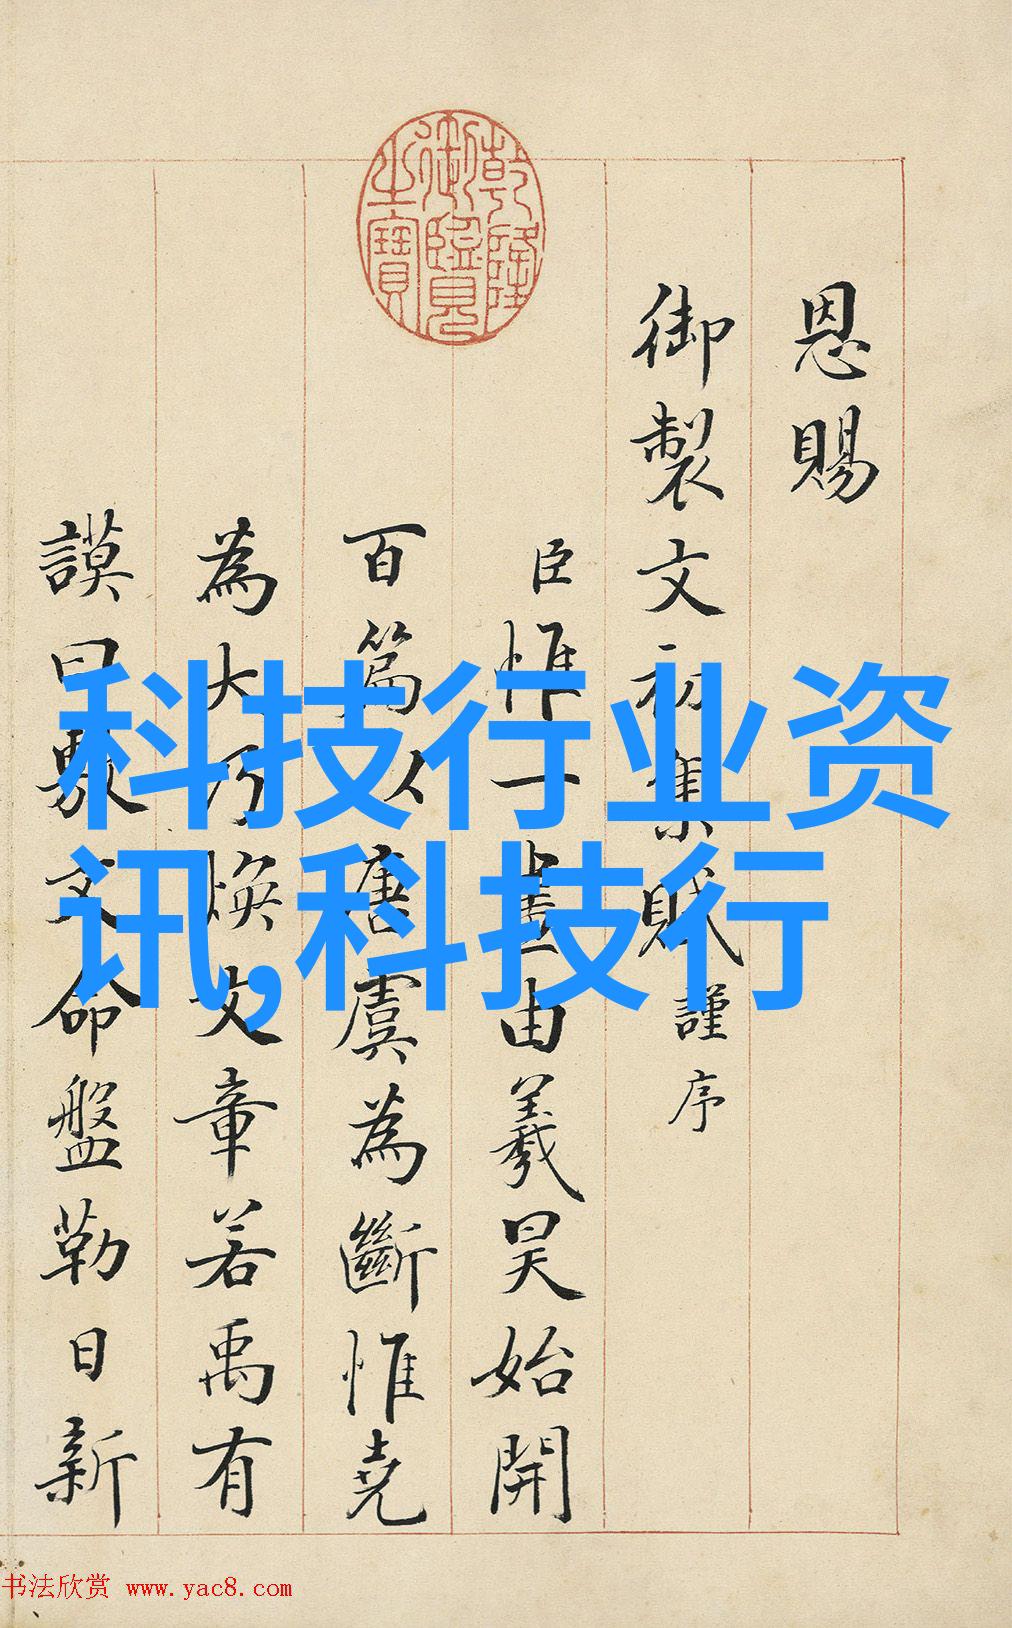 乾隆御覽之寶
恩賜
御製文初集賦謹序
臣惟一畫由羲昊始開
百篇以唐虞為斷惟堯
為大乃煥文章若禹有
謨曰敷文命盤勒日新
科技行业资
讯,科技行
书法欣赏 www.yac8.com